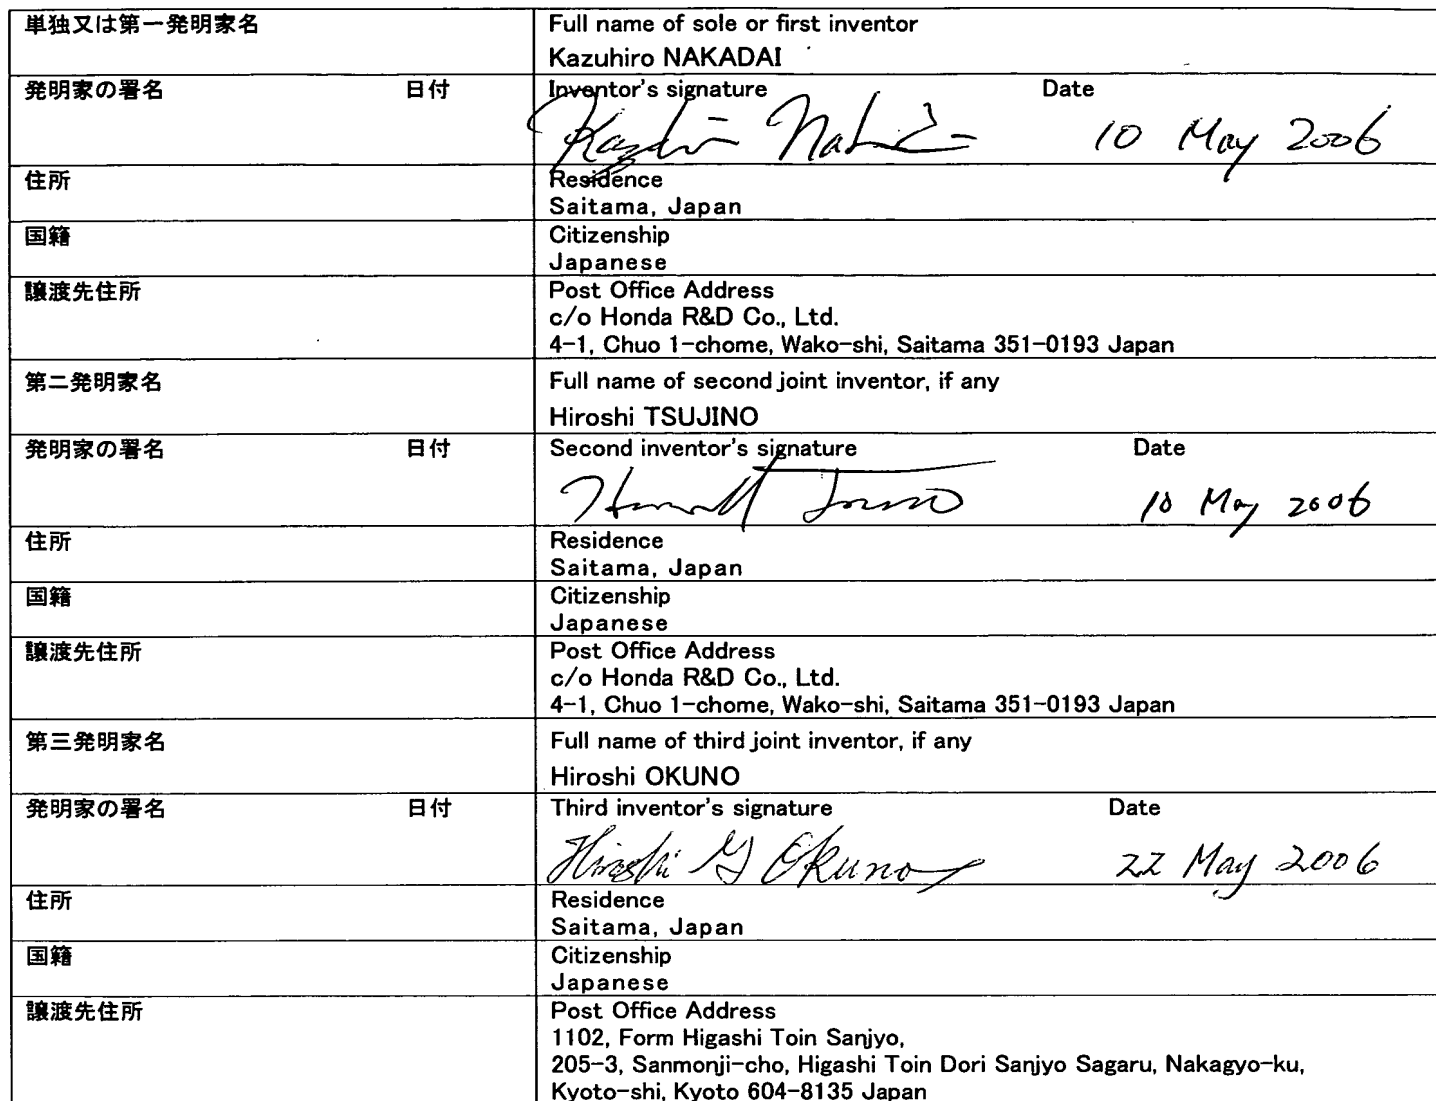 単独又は第一発明家名
Full name of sole or first inventor
Kazuhiro NAKADAI
発明家の署名 日付
Inventor's signature Date
10 May 2006
住所
Residence
Saitama, Japan
国籍
Citizenship
Japanese
譲渡先住所
Post Office Address
c/o Honda R&D Co., Ltd.
4-1, Chuo 1-chome, Wako-shi, Saitama 351-0193 Japan
第二発明家名
Full name of second joint inventor, if any
Hiroshi TSUJINO
発明家の署名 日付
Second inventor's signature Date
10 May 2006
住所
Residence
Saitama, Japan
国籍
Citizenship
Japanese
譲渡先住所
Post Office Address
c/o Honda R&D Co., Ltd.
4-1, Chuo 1-chome, Wako-shi, Saitama 351-0193 Japan
第三発明家名
Full name of third joint inventor, if any
Hiroshi OKUNO
発明家の署名 日付
Third inventor's signature Date
Hiroshi G Okuno 22 May 2006
住所
Residence
Saitama, Japan
国籍
Citizenship
Japanese
譲渡先住所
Post Office Address
1102, Form Higashi Toin Sanjyo,
205-3, Sanmonji-cho, Higashi Toin Dori Sanjyo Sagaru, Nakagyo-ku,
Kyoto-shi, Kyoto 604-8135 Japan